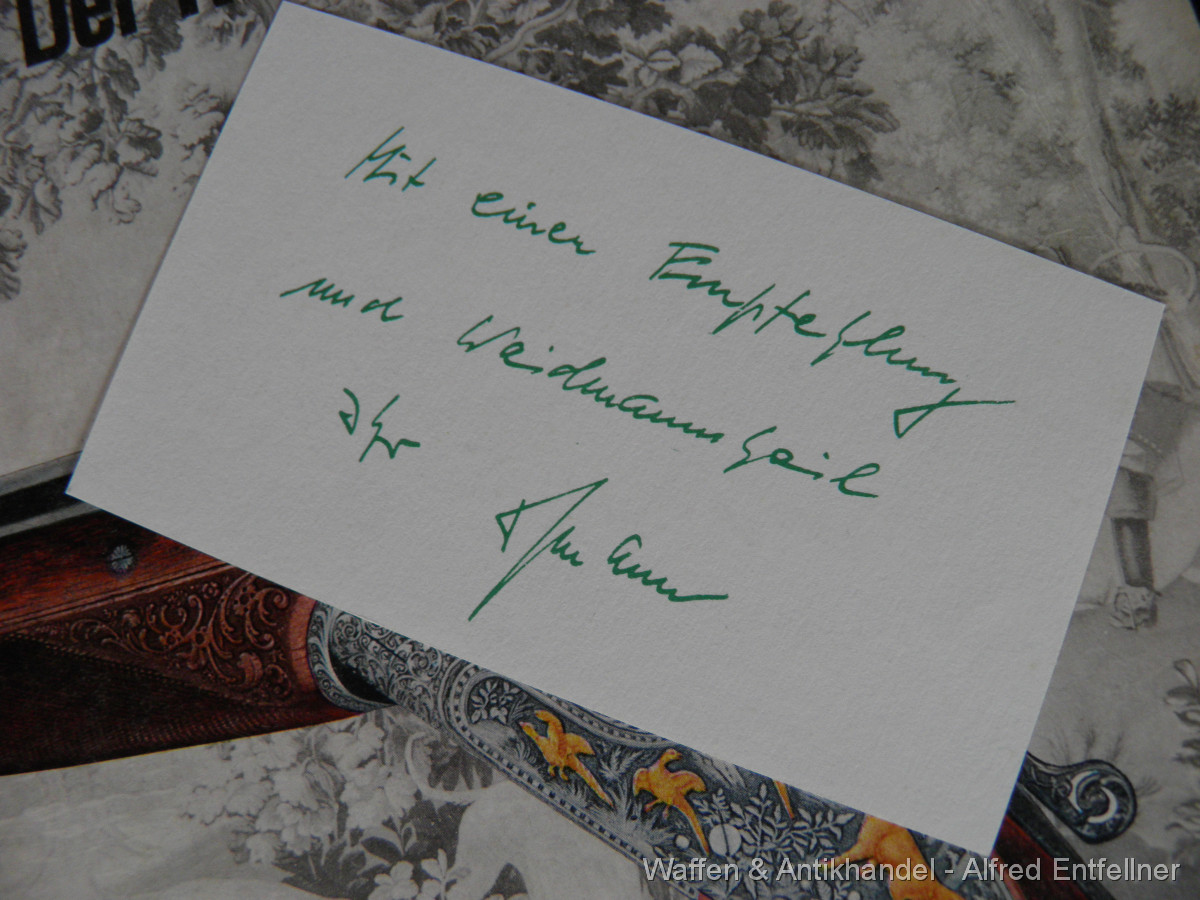 Der
Mit einer Empfehlung
und Waidmannsheil
Ihr
Waffen & Antikhandel - Alfred Entfellner